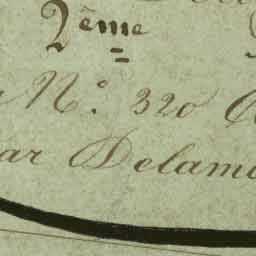 2ème
N.º 320
ar Delam